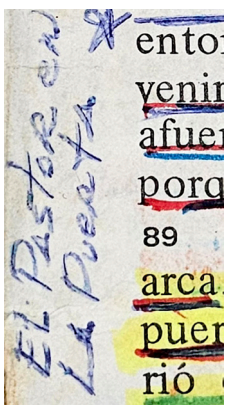 El Pastor en
La Puerta
ento
venir
afuer
porq
89
arca
puer
rió